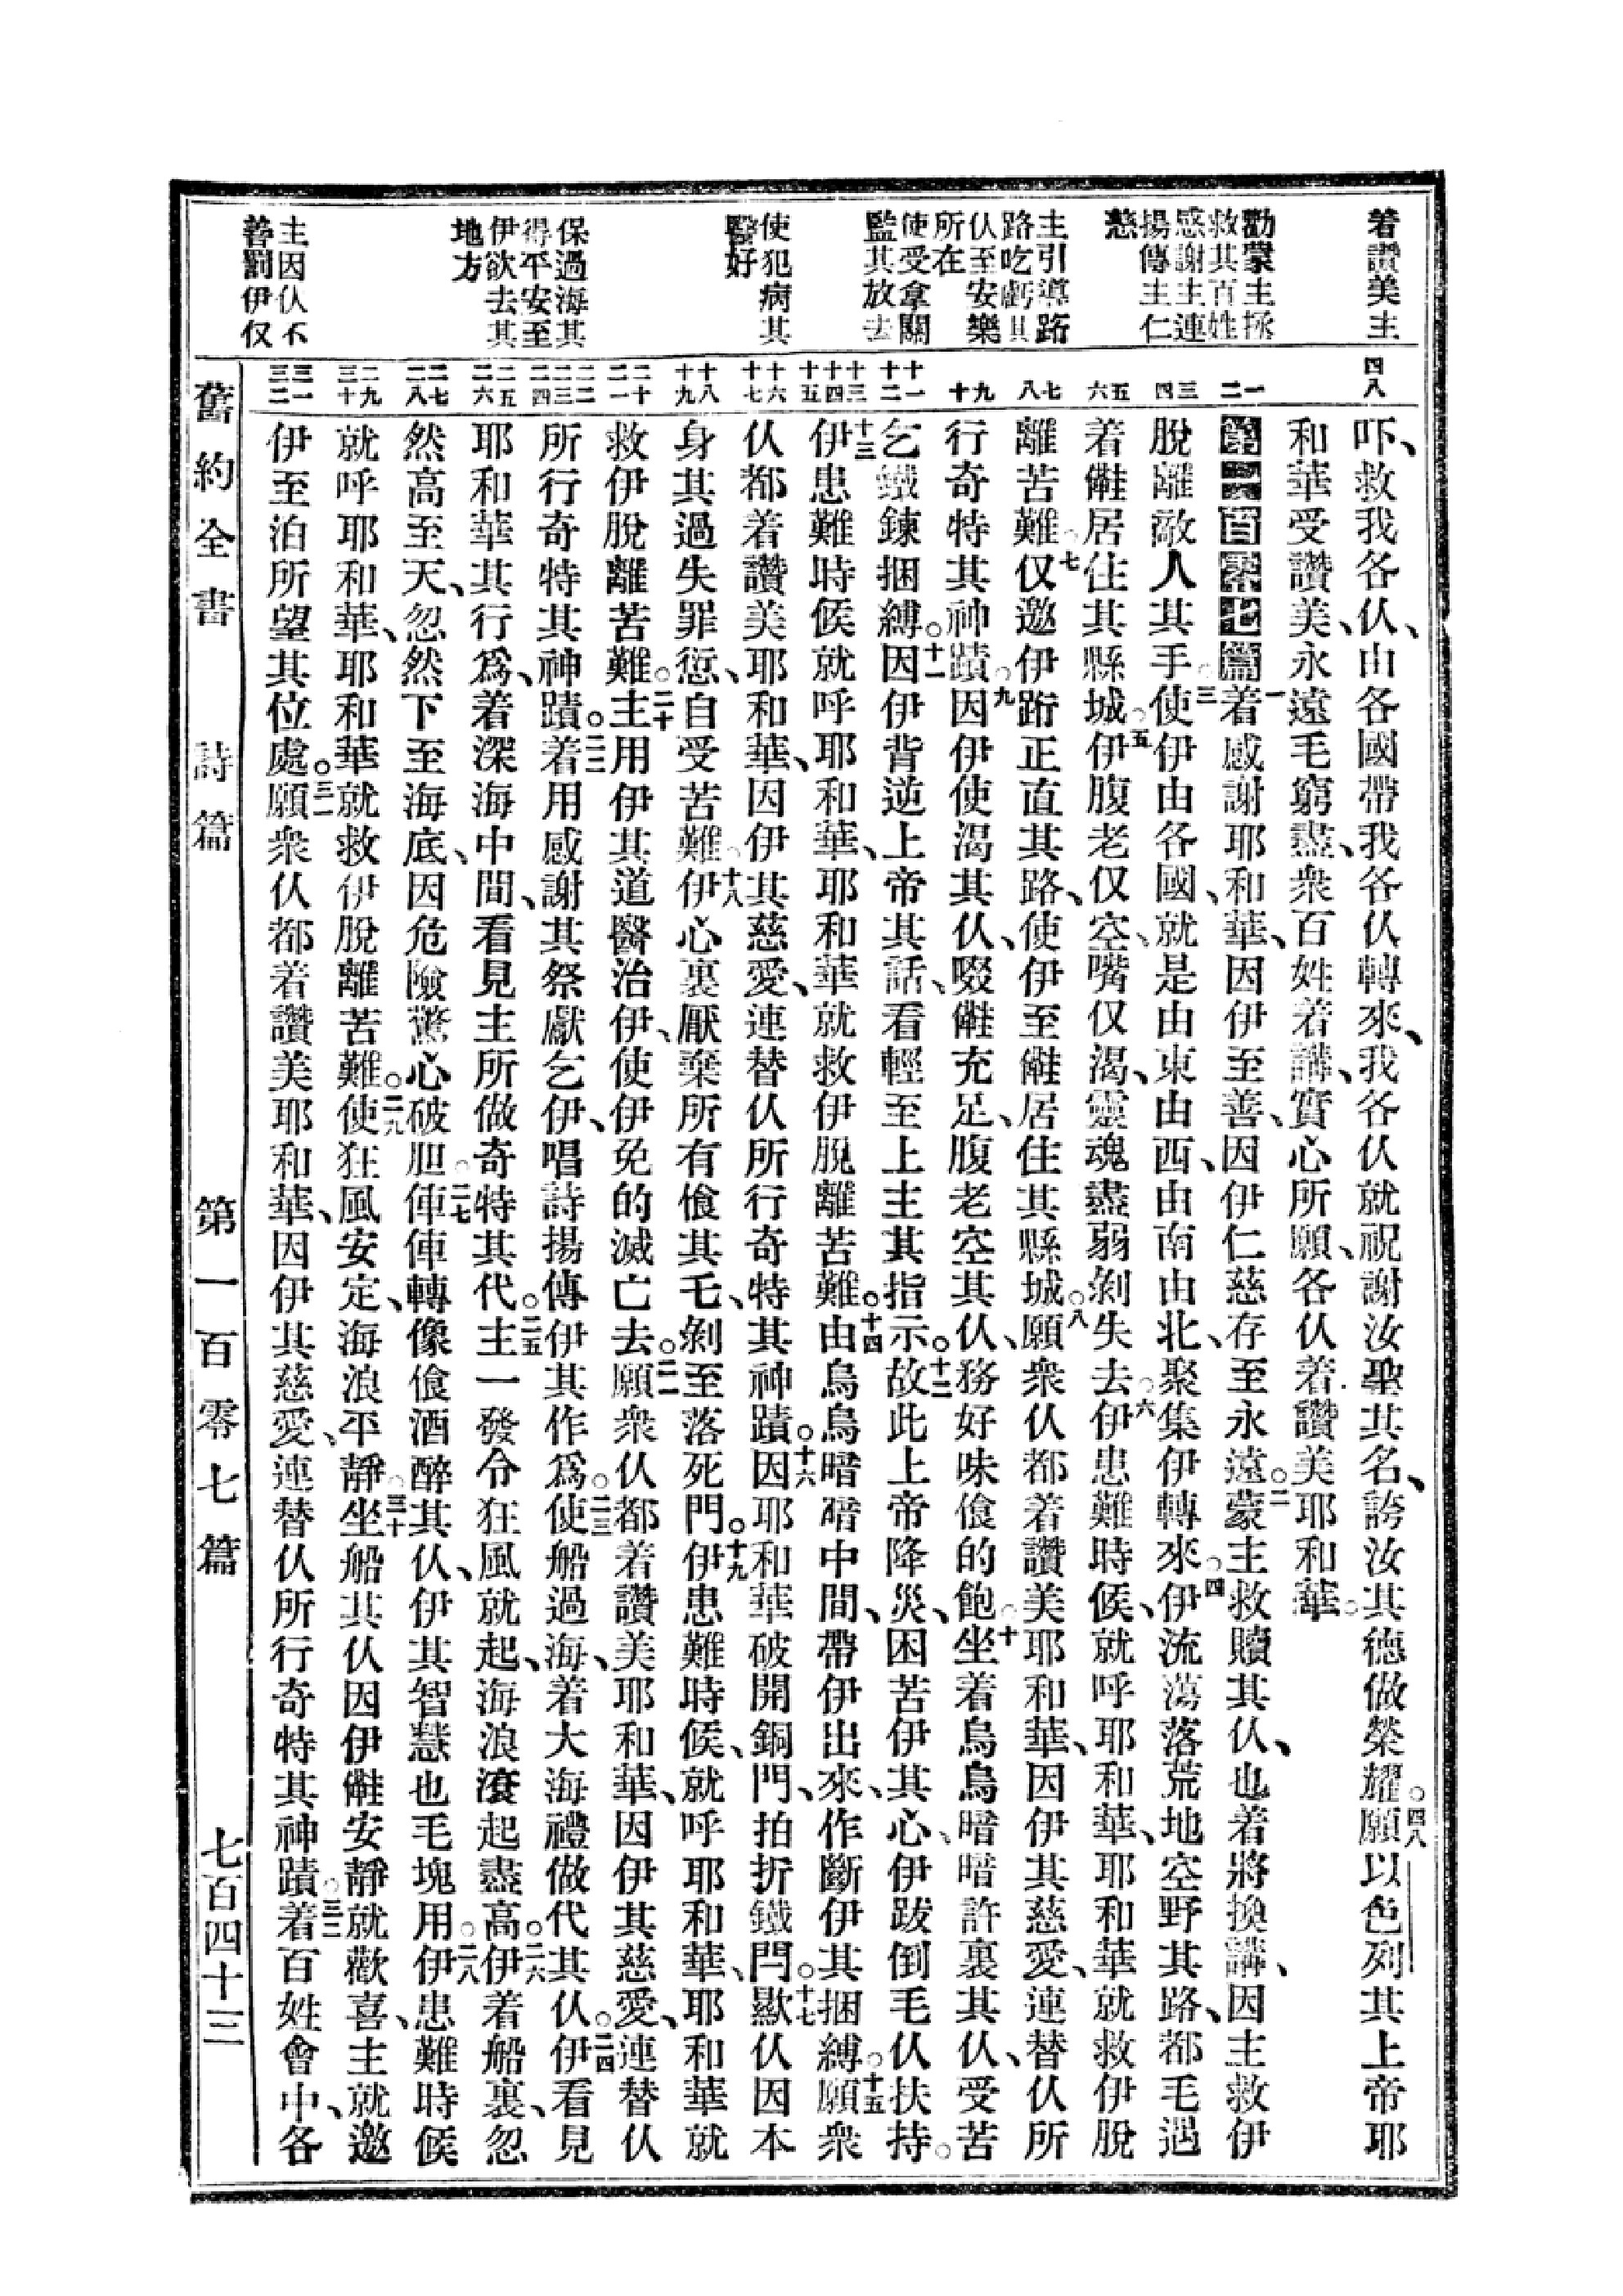 着讚美主
勸蒙主拯
救其百姓
感謝主連
揚傳主仁
慈
主引導跻
路吃虧其
仈至安樂
所在
使受拿關
監其放去
使犯病其
醫好
保過海其
得平安至
伊欲去其
地方
主因仈不
善罰伊仅
四八
一
二
三
四
五
六
七
八
九
十
十一
十二
十三
十四
十五
十六
十七
十八
十九
二十
二一
二二
二三
二四
二五
二六
二七
二八
二九
三十
三一
三二
吓、救我各仈、由各國帶我各仈轉來、我各仈就祝謝汝聖其名、誇汝其德做榮耀。四八願以色列其上帝耶
和華受讚美、永遠毛窮盡、衆百姓着講、實心所願、各仈着讚美耶和華。
第一百零七篇一着感謝耶和華、因伊至善、因伊仁慈存至永遠。二蒙主救贖其仈、也着將換講、因主救伊
脫離敵人其手。三使伊由各國、就是由東由西、由南由北、聚集伊轉來。四伊流蕩落荒地空野其路、都毛遇
着𣍐居住其縣城。五伊腹老仅空、嘴仅渴、靈魂盡弱剝失去。六伊患難時候、就呼耶和華、耶和華就救伊脫
離苦難。七仅邀伊跻正直其路、使伊至𣍐居住其縣城。八願衆仈都着讚美耶和華、因伊其慈愛、連替仈所
行奇特其神蹟。九因伊使渴其仈、啜𣍐充足、腹老空其仈、務好味飡的飽。十坐着烏烏暗暗許裏其仈、受苦
乞鐵鍊捆縛。十一因伊背逆上帝其話、看輕至上主其指示。十二故此上帝降災、困苦伊其心、伊跋倒毛仈扶持。
十三伊患難時候就呼耶和華、耶和華、就救伊脫離苦難。十四由烏烏暗暗中間、帶伊出來、作斷伊其捆縛。十五願衆
仈都着讚美耶和華、因伊其慈愛、連替仈所行奇特其神蹟。十六因耶和華破開銅門、拍折鐵閂。十七歞仈因本
身其過失罪愆、自受苦難。十八伊心裏厭棄所有飡其毛、剝至落死門。十九伊患難時候、就呼耶和華、耶和華就
救伊脫離苦難。二十主用伊其道醫治伊、使伊免的滅亡去。二一願衆仈都着讚美耶和華、因伊其慈愛、連替仈
所行奇特其神蹟。二二着用感謝其祭獻乞伊、唱詩揚傳伊其作爲。二三使船過海、着大海禮做代其仈。二四伊看見
耶和華其行爲、着深海中間、看見主所做奇特其代。二五主一發令狂風就起、海浪滾起盡高。二六伊着船裏、忽
然高至天、忽然下至海底、因危險驚心破胆。二七俥俥轉像飡酒醉其仈、伊其智慧也毛塊用。二八伊患難時候
就呼耶和華、耶和華就救伊脫離苦難。二九使狂風安定、海浪平靜。三十坐船其仈因伊𣍐安靜就歡喜、主就邀
伊至泊所望其位處。三一願衆仈都着讚美耶和華、因伊其慈愛、連替仈所行奇特其神蹟。三二着百姓會中、各
舊約全書　詩篇　第一百零七篇　七百四十三